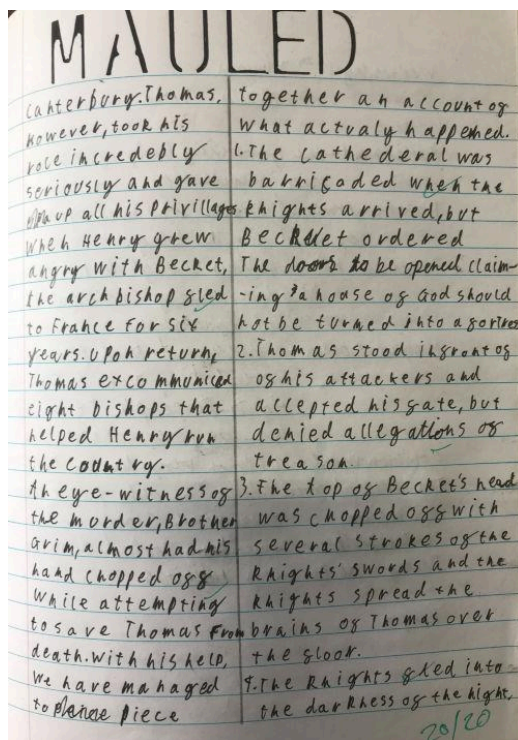 MAULED
Canterbury. Thomas,
however, took his
role incredebly
seriously and gave
up all his privillages
when Henry grew
angry with Becket,
the archbishop fled
to France for six
years. Upon return,
Thomas excommuniced
eight bishops that
helped Henry run
the country.
An eye-witness of
the morder, Brother
Grim, almost had his
hand chopped off
while attempting
to save Thomas from
death. With his help,
we have managed
to piece
together an account of
what actualy happened.
1. The cathederal was
barricaded when the
knights arrived, but
Becket ordered
The doors to be opened claim-
-ing "a house of God should
not be turned into a fortres
2. Thomas stood infront of
of his attackers and
accepted his fate, but
denied allegations of
treason.
3. The top of Becket's head
was chopped off with
several strokes of the
knights' swords and the
knights spread the
brains of Thomas over
the floor.
4. The knights fled into
the darkness of the night.
20/20